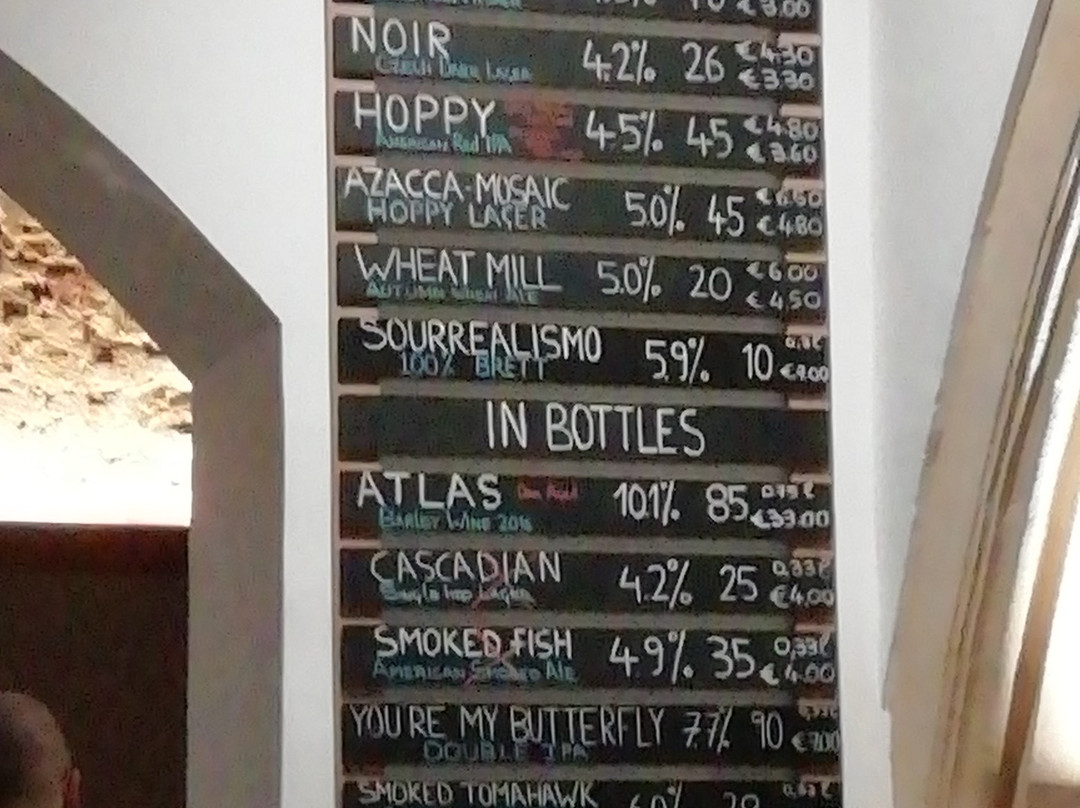 €3.00
NOIR 4.2% 26 €4.30
CZECH DARK LAGER €3.30
HOPPY 4.5% 45 €4.80
AMERICAN Red IPA €3.60
AZACCA-MOSAIC 5.0% 45 €6.60
HOPPY LAGER €4.80
WHEAT MILL 5.0% 20 €6.00
AUTUMN WHEAT ALE €4.50
SOURREALISMO 5.9% 10
100% BRETT €4.00
IN BOTTLES
ATLAS 10.1% 85 0.75ℓ
BARLEY WINE 2016 €39.00
CASCADIAN 4.2% 25 0,33ℓ
Single Hop Lager €4.00
SMOKED FISH 4.9% 35 0,33ℓ
AMERICAN SMOKED ALE €4.00
YOU'RE MY BUTTERFLY 7.7% 90
DOUBLE IPA €7.00
SMOKED TOMAHAWK